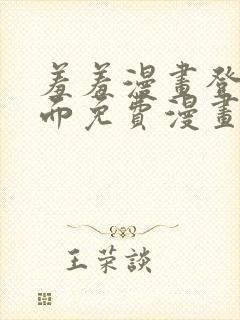 羞羞漫畫登
而免費漫畫
王荣談